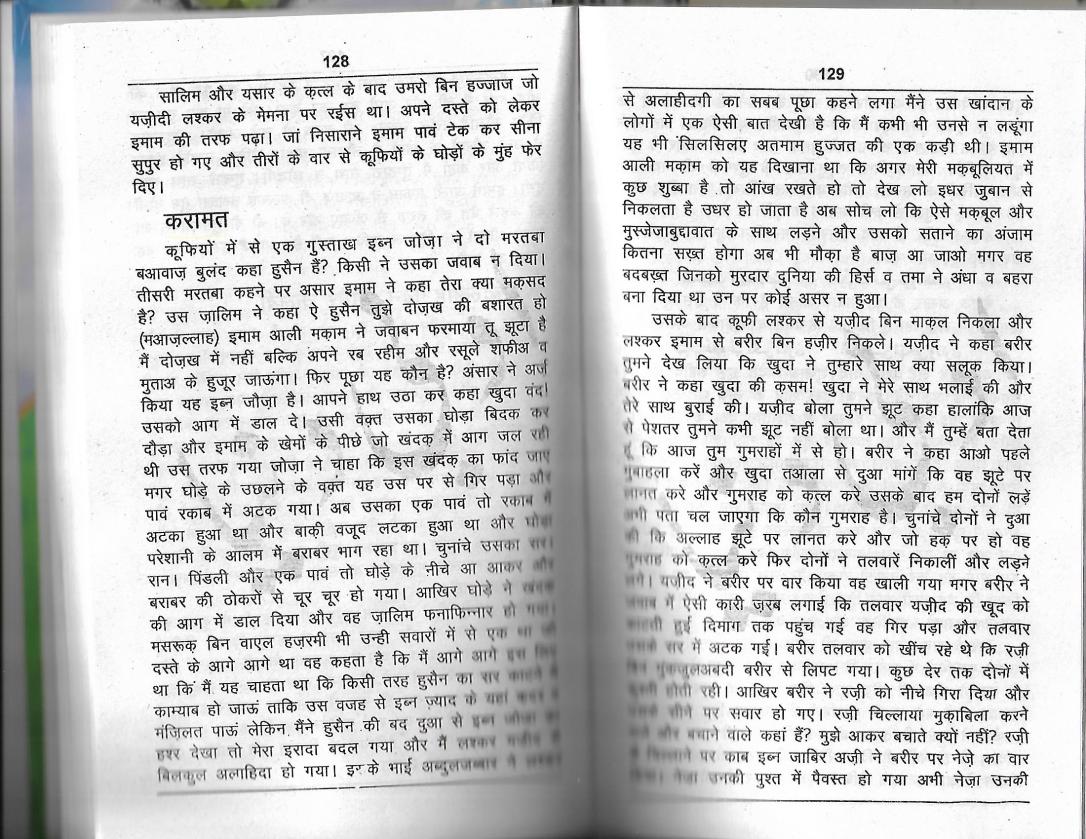 128
सालिम और यसार के क़त्ल के बाद उमरो बिन हज्जाज जो
यज़ीदी लश्कर के मेमना पर रईस था। अपने दस्ते को लेकर
इमाम की तरफ पढ़ा। जां निसाराने इमाम पावं टेक कर सीना
सुपुर हो गए और तीरों के वार से कूफियों के घोड़ों के मुंह फेर
दिए।
करामत
कूफियों में से एक गुस्ताख इब्न जोज़ा ने दो मरतबा
बआवाज़ बुलंद कहा हुसैन हैं? किसी ने उसका जवाब न दिया।
तीसरी मरतबा कहने पर असार इमाम ने कहा तेरा क्या मक़सद
है? उस ज़ालिम ने कहा ऐ हुसैन तुझे दोज़ख की बशारत हो
(मआज़ल्लाह) इमाम आली मक़ाम ने जवाबन फरमाया तू झूटा है
मैं दोज़ख में नहीं बल्कि अपने रब रहीम और रसूले शफीअ व
मुताअ के हुजूर जाऊंगा। फिर पूछा यह कौन है? अंसार ने अर्ज
किया यह इब्न जौज़ा है। आपने हाथ उठा कर कहा खुदा वंद!
उसको आग में डाल दे। उसी वक़्त उसका घोड़ा बिदक कर
दौड़ा और इमाम के खेमों के पीछे जो खंदक़ में आग जल रही
थी उस तरफ गया जोज़ा ने चाहा कि इस खंदक़ का फांद जाए
मगर घोड़े के उछलने के वक़्त यह उस पर से गिर पड़ा और
पावं रकाब में अटक गया। अब उसका एक पावं तो रकाब में
अटका हुआ था और बाक़ी वजूद लटका हुआ था और घोड़ा
परेशानी के आलम में बराबर भाग रहा था। चुनांचे उसका सर।
रान। पिंडली और एक पावं तो घोड़े के नीचे आ आकर और
बराबर की ठोकरों से चूर चूर हो गया। आखिर घोड़े ने खंदक़
की आग में डाल दिया और वह ज़ालिम फनाफिन्नार हो गया।
मसरूक़ बिन वाएल हज़रमी भी उन्ही सवारों में से एक था जो
दस्ते के आगे आगे था वह कहता है कि मैं आगे आगे इस लिए
था कि मैं यह चाहता था कि किसी तरह हुसैन का सर काटने में
काम्याब हो जाऊं ताकि उस वजह से इब्न ज़्याद के यहां
मंज़िलत पाऊं लेकिन मैंने हुसैन की बद दुआ से इब्न जोज़ा का
हश्र देखा तो मेरा इरादा बदल गया और मैं लश्कर यज़ीद से
बिलकुल अलाहिदा हो गया। इनके भाई अब्दुलजब्बार ने लश्कर
129
से अलाहीदगी का सबब पूछा कहने लगा मैंने उस खांदान के
लोगों में एक ऐसी बात देखी है कि मैं कभी भी उनसे न लड़ूंगा
यह भी सिलसिलए अतमाम हुज्जत की एक कड़ी थी। इमाम
आली मक़ाम को यह दिखाना था कि अगर मेरी मक़बूलियत में
कुछ शुब्बा है तो आंख रखते हो तो देख लो इधर जुबान से
निकलता है उधर हो जाता है अब सोच लो कि ऐसे मक़बूल और
मुस्जेजाबुद्दावात के साथ लड़ने और उसको सताने का अंजाम
कितना सख़्त होगा अब भी मौक़ा है बाज़ आ जाओ मगर वह
बदबख़्त जिनको मुरदार दुनिया की हिर्स व तमा ने अंधा व बहरा
बना दिया था उन पर कोई असर न हुआ।
उसके बाद कूफी लश्कर से यज़ीद बिन माक़ल निकला और
लश्कर इमाम से बरीर बिन हज़ीर निकले। यज़ीद ने कहा बरीर
तुमने देख लिया कि खुदा ने तुम्हारे साथ क्या सलूक किया।
बरीर ने कहा खुदा की क़सम! खुदा ने मेरे साथ भलाई की और
तेरे साथ बुराई की। यज़ीद बोला तुमने झूट कहा हालांकि आज
से पेशतर तुमने कभी झूट नहीं बोला था। और मैं तुम्हें बता देता
हूं कि आज तुम गुमराहों में से हो। बरीर ने कहा आओ पहले
मुबाहला करें और खुदा तआला से दुआ मांगें कि वह झूटे पर
लानत करे और गुमराह को क़त्ल करे उसके बाद हम दोनों लड़ें
अभी पता चल जाएगा कि कौन गुमराह है। चुनांचे दोनों ने दुआ
की कि अल्लाह झूटे पर लानत करे और जो हक़ पर हो वह
गुमराह को क़त्ल करे फिर दोनों ने तलवारें निकालीं और लड़ने
लगे। यज़ीद ने बरीर पर वार किया वह खाली गया मगर बरीर ने
जवाब में ऐसी कारी ज़रब लगाई कि तलवार यज़ीद की खूद को
काटती हुई दिमाग तक पहुंच गई वह गिर पड़ा और तलवार
उसके सर में अटक गई। बरीर तलवार को खींच रहे थे कि रज़ी
बिन बरीर से लिपट गया। कुछ देर तक दोनों में
कुश्ती होती रही। आखिर बरीर ने रज़ी को नीचे गिरा दिया और
उसके सीने पर सवार हो गए। रज़ी चिल्लाया मुक़ाबिला करने
वाले और बचाने वाले कहां हैं? मुझे आकर बचाते क्यों नहीं? रज़ी
के चिल्लाने पर काब इब्न जाबिर अज़ी ने बरीर पर नेज़े का वार
किया। नेज़ा उनकी पुश्त में पैवस्त हो गया अभी नेज़ा उनकी